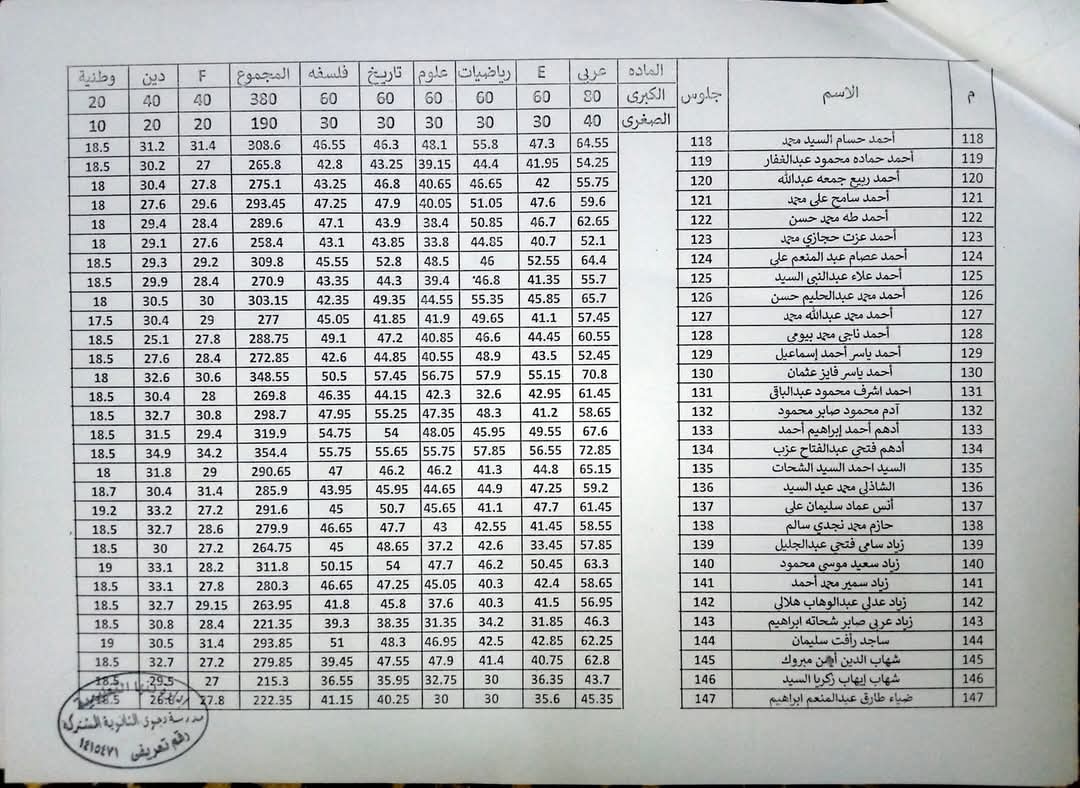 م الاسم جلوس الماده عربى E رياضيات علوم تاريخ فلسفه المجموع F دين وطنية
الكبرى 80 60 60 60 60 60 380 40 40 20
الصغرى 40 30 30 30 30 30 190 20 20 10
118 أحمد حسام السيد محمد 118 64.55 47.3 55.8 48.1 46.3 46.55 308.6 31.4 31.2 18.5
119 أحمد حماده محمود عبدالغفار 119 54.25 41.95 44.4 39.15 43.25 42.8 265.8 27 30.2 18.5
120 أحمد ربيع جمعه عبدالله 120 55.75 42 46.65 40.65 46.8 43.25 275.1 27.8 30.4 18
121 أحمد سامح على محمد 121 59.6 47.6 51.05 40.05 47.9 47.25 293.45 29.6 27.6 18
122 أحمد طه محمد حسن 122 62.65 46.7 50.85 38.4 43.9 47.1 289.6 28.4 29.4 18
123 أحمد عزت حجازي محمد 123 52.1 40.7 44.85 33.8 43.85 43.1 258.4 27.6 29.1 18
124 أحمد عصام عبد المنعم على 124 64.4 52.55 46 48.5 52.8 45.55 309.8 29.2 29.3 18.5
125 أحمد علاء عبدالنبى السيد 125 55.7 41.35 46.8 39.4 44.3 43.35 270.9 28.4 29.9 18.5
126 أحمد محمد عبدالحليم حسن 126 65.7 45.85 55.35 44.55 49.35 42.35 303.15 30 30.5 18
127 أحمد محمد عبدالله محمد 127 57.45 41.1 49.65 41.9 41.85 45.05 277 29 30.4 17.5
128 أحمد ناجى محمد بيومى 128 60.55 44.45 46.6 40.85 47.2 49.1 288.75 27.8 25.1 18.5
129 أحمد ياسر أحمد إسماعيل 129 52.45 43.5 48.9 40.55 44.85 42.6 272.85 28.4 27.6 18.5
130 أحمد ياسر فايز عثمان 130 70.8 55.15 57.9 56.75 57.45 50.5 348.55 30.6 32.6 18
131 احمد اشرف محمود عبدالباقى 131 61.45 42.95 32.6 42.3 44.15 46.35 269.8 28 30.4 18.5
132 آدم محمود صابر محمود 132 58.65 41.2 48.3 47.35 55.25 47.95 298.7 30.8 32.7 18.5
133 أدهم أحمد إبراهيم أحمد 133 67.6 49.55 45.95 48.05 54 54.75 319.9 29.4 31.5 18.5
134 أدهم فتحى عبدالفتاح عزب 134 72.85 56.55 57.85 55.75 55.65 55.75 354.4 34.2 34.9 18.5
135 السيد احمد السيد الشحات 135 65.15 44.8 41.3 46.2 46.2 47 290.65 29 31.8 18
136 الشاذلي محمد عيد السيد 136 59.2 47.25 44.9 44.65 45.95 43.95 285.9 31.4 30.4 18.7
137 أنس عماد سليمان على 137 61.45 47.7 41.1 45.65 50.7 45 291.6 27.2 33.2 19.2
138 حازم محمد نجدي سالم 138 58.55 41.45 42.55 43 47.7 46.65 279.9 28.6 32.7 18.5
139 زياد سامى فتحي عبدالجليل 139 57.85 33.45 42.6 37.2 48.65 45 264.75 27.2 30 18.5
140 زياد سعيد موسى محمود 140 63.3 50.45 46.2 47.7 54 50.15 311.8 28.2 33.1 19
141 زياد سمير محمد أحمد 141 58.65 42.4 40.3 45.05 47.25 46.65 280.3 27.8 33.1 18.5
142 زياد عدلي عبدالوهاب هلالى 142 56.95 41.5 40.3 37.6 45.8 41.8 263.95 29.15 32.7 18.5
143 زياد عربى صابر شحاته ابراهيم 143 46.3 31.85 34.2 31.35 38.35 39.3 221.35 28.4 30.8 18.5
144 ساجد رأفت سليمان 144 62.25 42.85 42.5 46.95 48.3 51 293.85 31.4 30.5 19
145 شهاب الدين أيمن مبروك 145 62.8 40.75 41.4 47.9 47.55 39.45 279.85 27.2 32.7 18.5
146 شهاب إيهاب زكريا السيد 146 43.7 36.35 30 32.75 35.95 36.55 215.3 27 29.5 18.5
147 ضياء طارق عبدالمنعم ابراهيم 147 45.35 35.6 30 30 40.25 41.15 222.35 27.8
مدرسة دجوى الثانوية المشتركة
رقم تعريفى
١٤١٥٤٧١